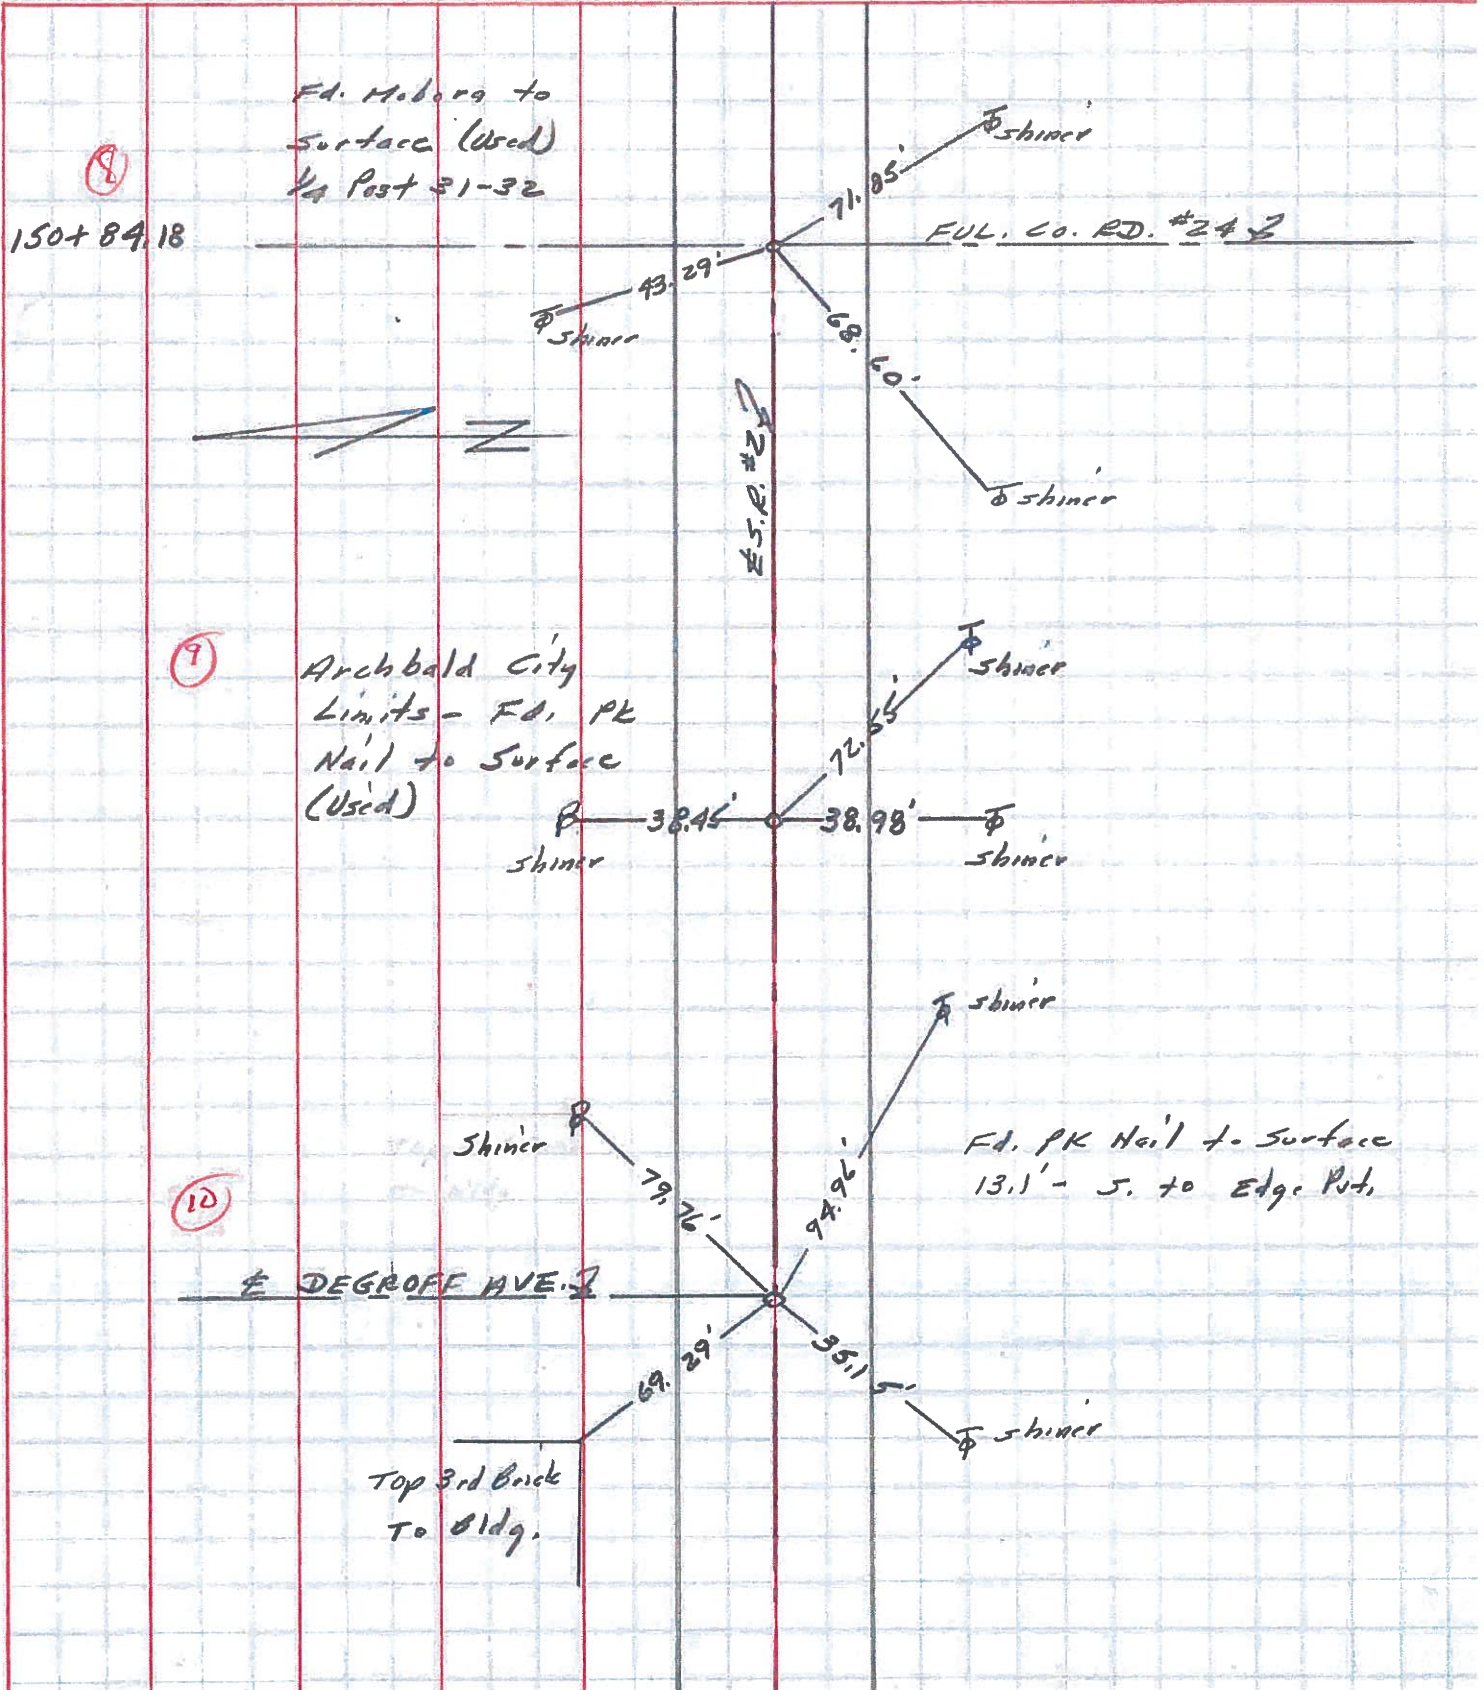 Fd. Moborg to
Surface (Used)
1/4 Post 31-32
8
150+84.18
71.85'
shiner
FUL. CO. RD. #24
43.29'
shiner
68.60'
shiner
N
℄ S.R. #2
9
Archbald City
Limits - Fd. PK
Nail to Surface
(Used)
72.55'
shiner
38.45'
shiner
38.98'
shiner
shiner
Shiner
79.76'
94.96'
Fd. PK Nail to Surface
13.1' - S. to Edge Pvt.
10
℄ DEGROFF AVE.
69.29'
35.15'
shiner
Top 3rd Brick
To Bldg.